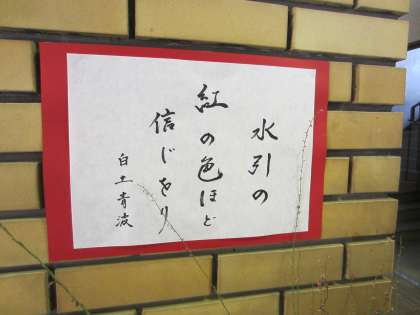 水引の
紅の色ほど
信じをり
白土青波